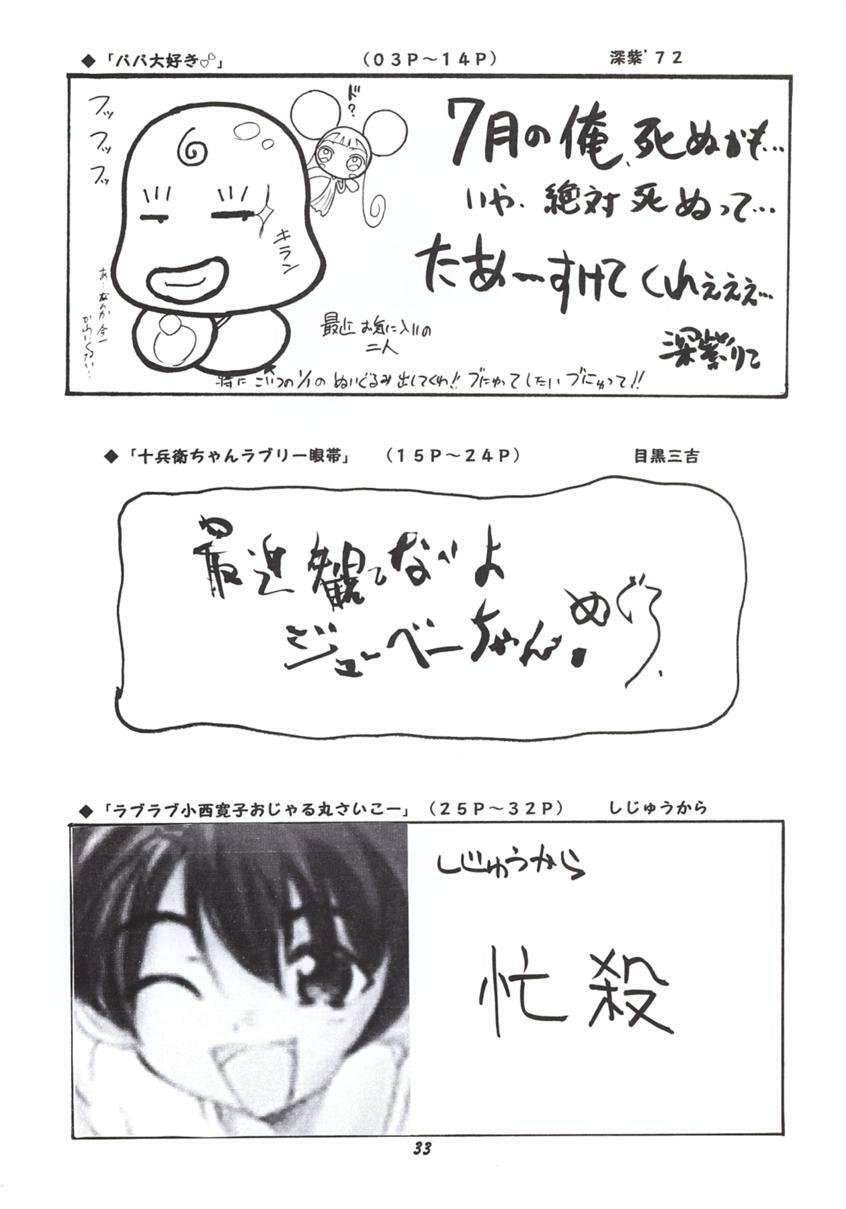 ◆「パパ大好き♡」 （０３Ｐ～１４Ｐ） 深紫'７２
フッ
フッ
フッ
ド？
キラン
７月の俺、死ぬかも…
いや、絶対死ぬって…
たあーすけてくれぇぇぇ…
深紫りこ
最近お気に入りの
二人
特にこいつの1/1のぬいぐるみ出してくれ!!ブにゅってしたいブにゅって!!
◆「十兵衛ちゃんラブリー眼帯」 （１５Ｐ～２４Ｐ） 目黒三吉
最近観てないよ
ジューベーちゃん。めぐろ
◆「ラブラブ小西寛子おじゃる丸さいこー」（２５Ｐ～３２Ｐ） しじゅうから
しじゅうから
忙殺
33